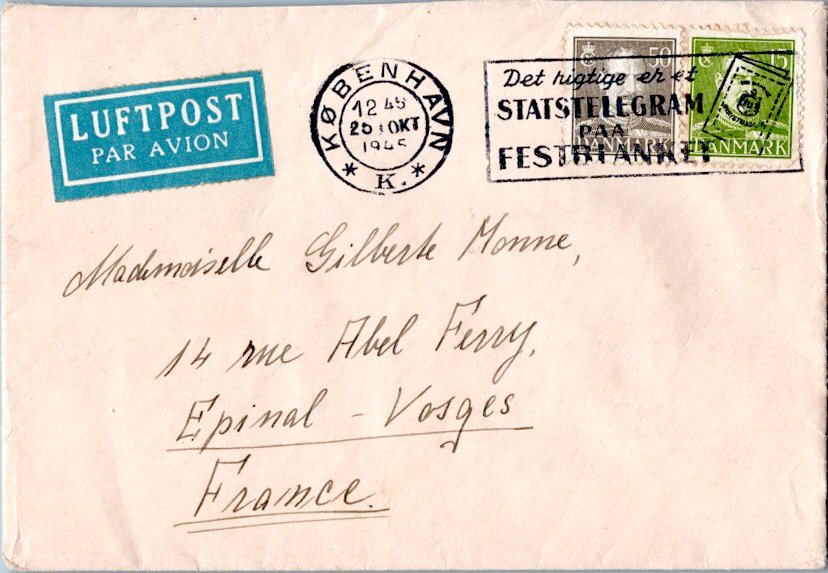 LUFTPOST
PAR AVION
KØBENHAVN
25 OKT
1945
* K. *
Det rigtige er et
STATSTELEGRAM
PAA
FESTBLANKET
50
DANMARK
15
DANMARK
Mademoiselle Gilberte Monne,
14 rue Abel Ferry,
Epinal - Vosges
France.